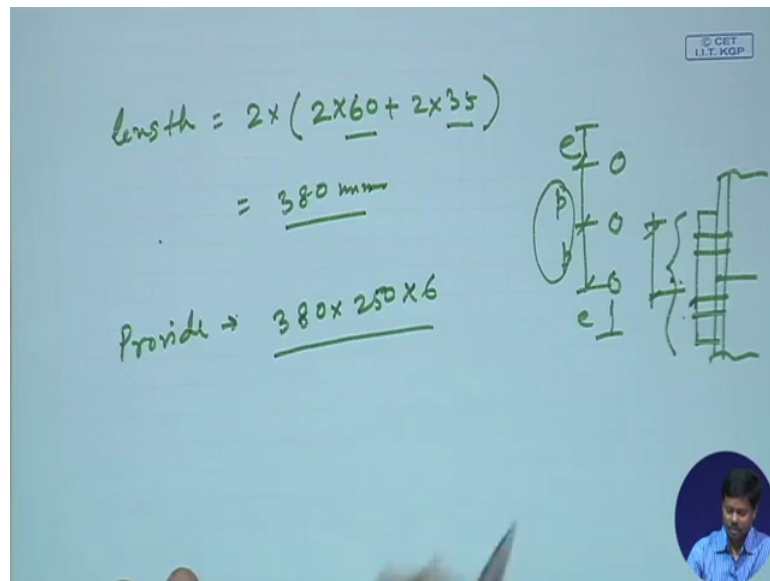 © CET
I.I.T. KGP
length = 2x (2x60+ 2x35)
= 380 mm
Provide → 380x 250x6
e
p
p
e